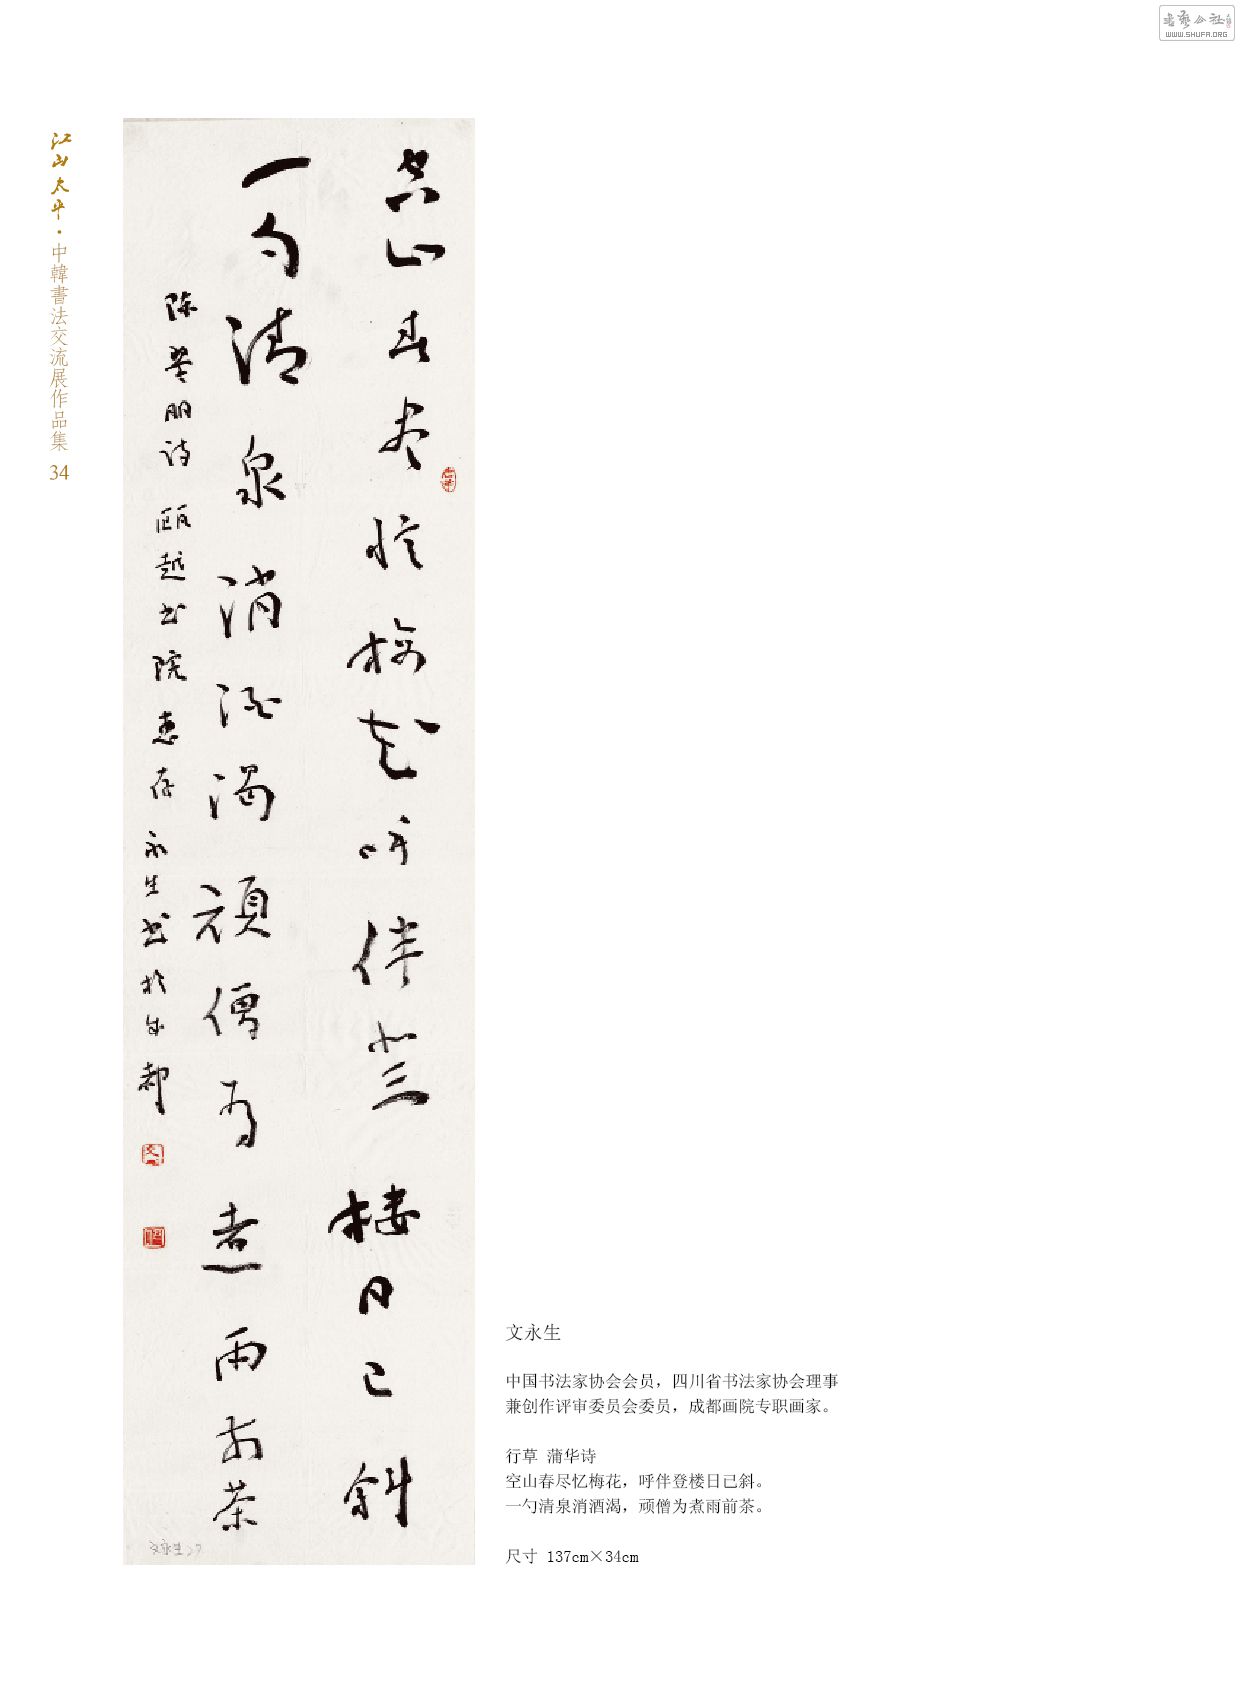 書藝公社
WWW.SHUFA.ORG
江山太平·中韓書法交流展作品集 34
空山春尽忆梅花呼伴登楼日已斜
一勺清泉消酒渴顽僧为煮雨前茶
诗 瓯越书院惠存 永生书于成都
文永生
中国书法家协会会员，四川省书法家协会理事
兼创作评审委员会委员，成都画院专职画家。
行草 蒲华诗
空山春尽忆梅花，呼伴登楼日已斜。
一勺清泉消酒渴，顽僧为煮雨前茶。
尺寸 137cm×34cm
文永生 27